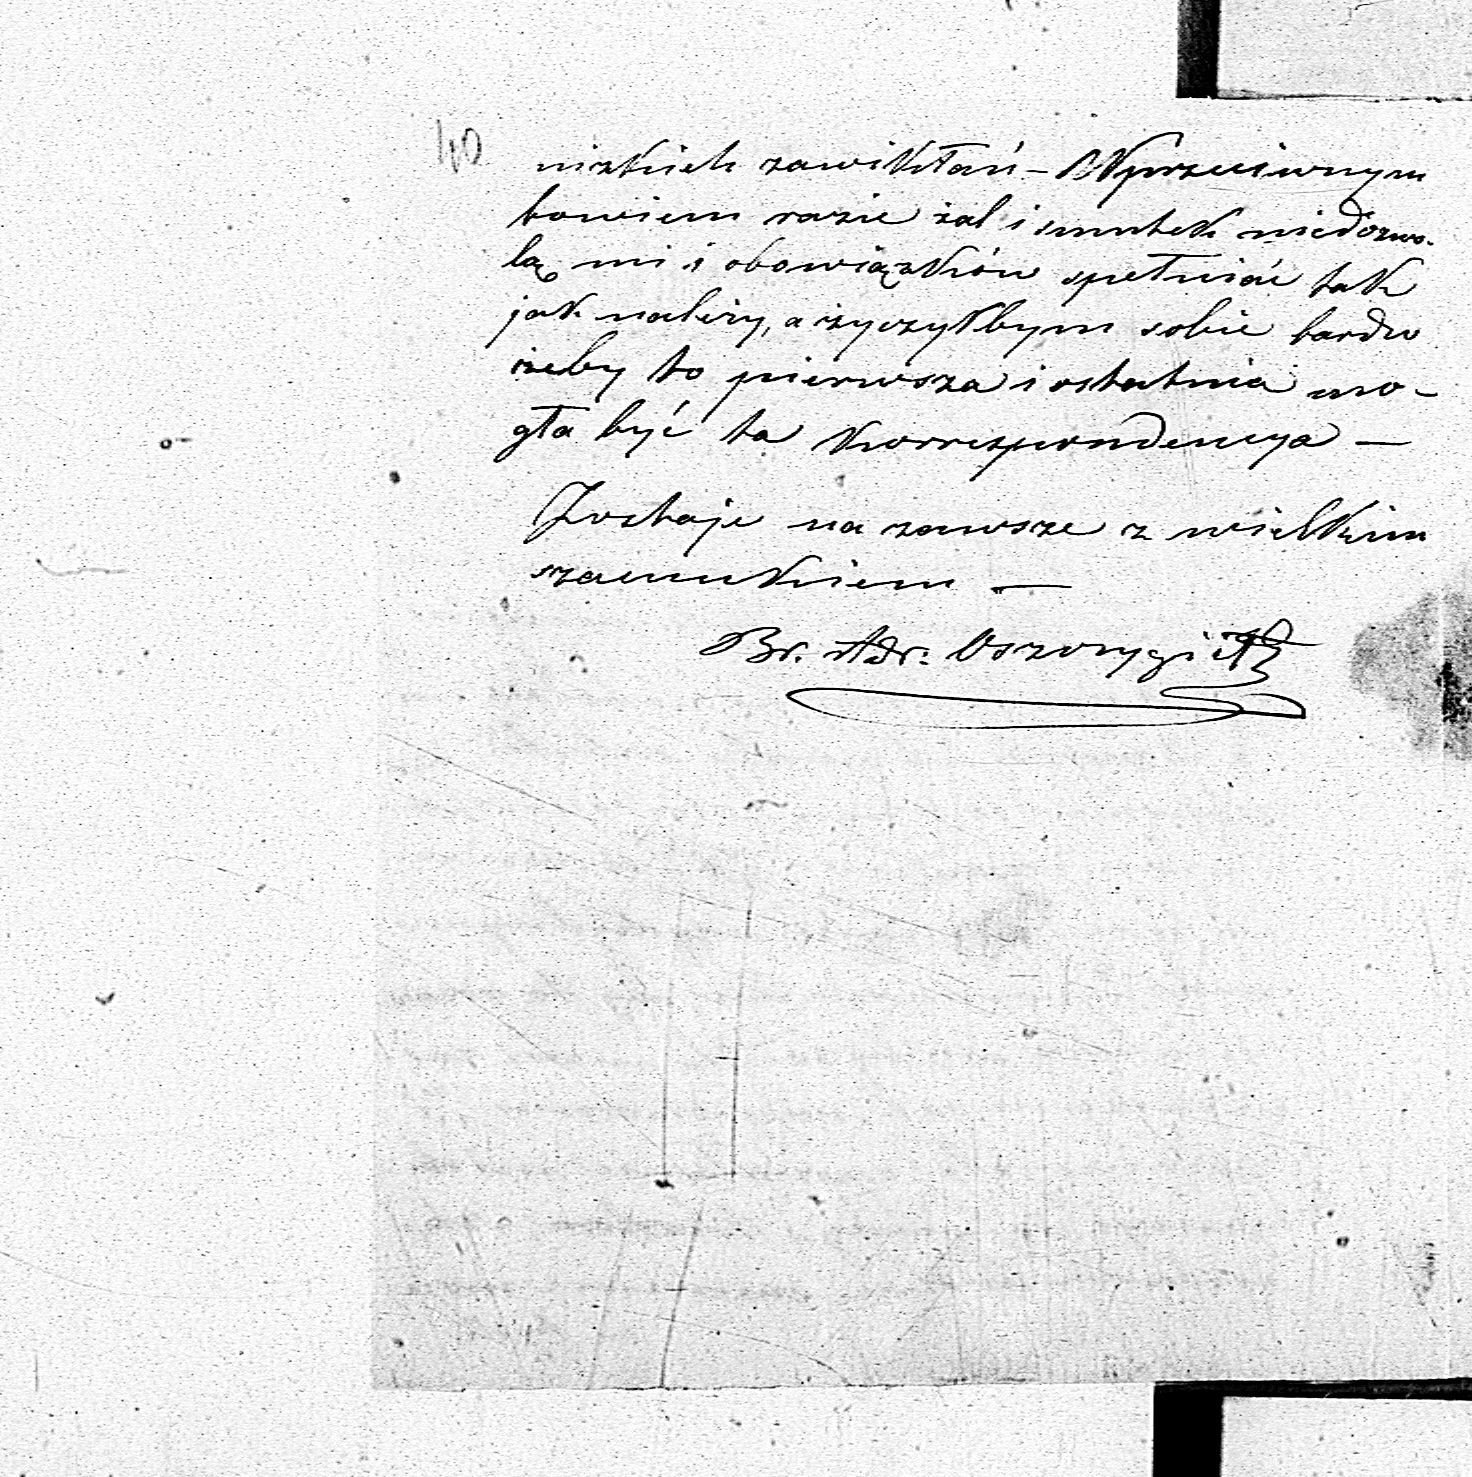 40
nizkich zawikłań – W przeciwnym
bowiem razie żal i smutek niedozwo-
lą mi i obowiązków spełniać tak
jak należy, a życzyłbym sobie bardzo
żeby to pierwsza i ostatnia mo-
gła być ta korrespondencya —
Zostaje na zawsze z wielkim
szacunkiem —
Br. Adr.